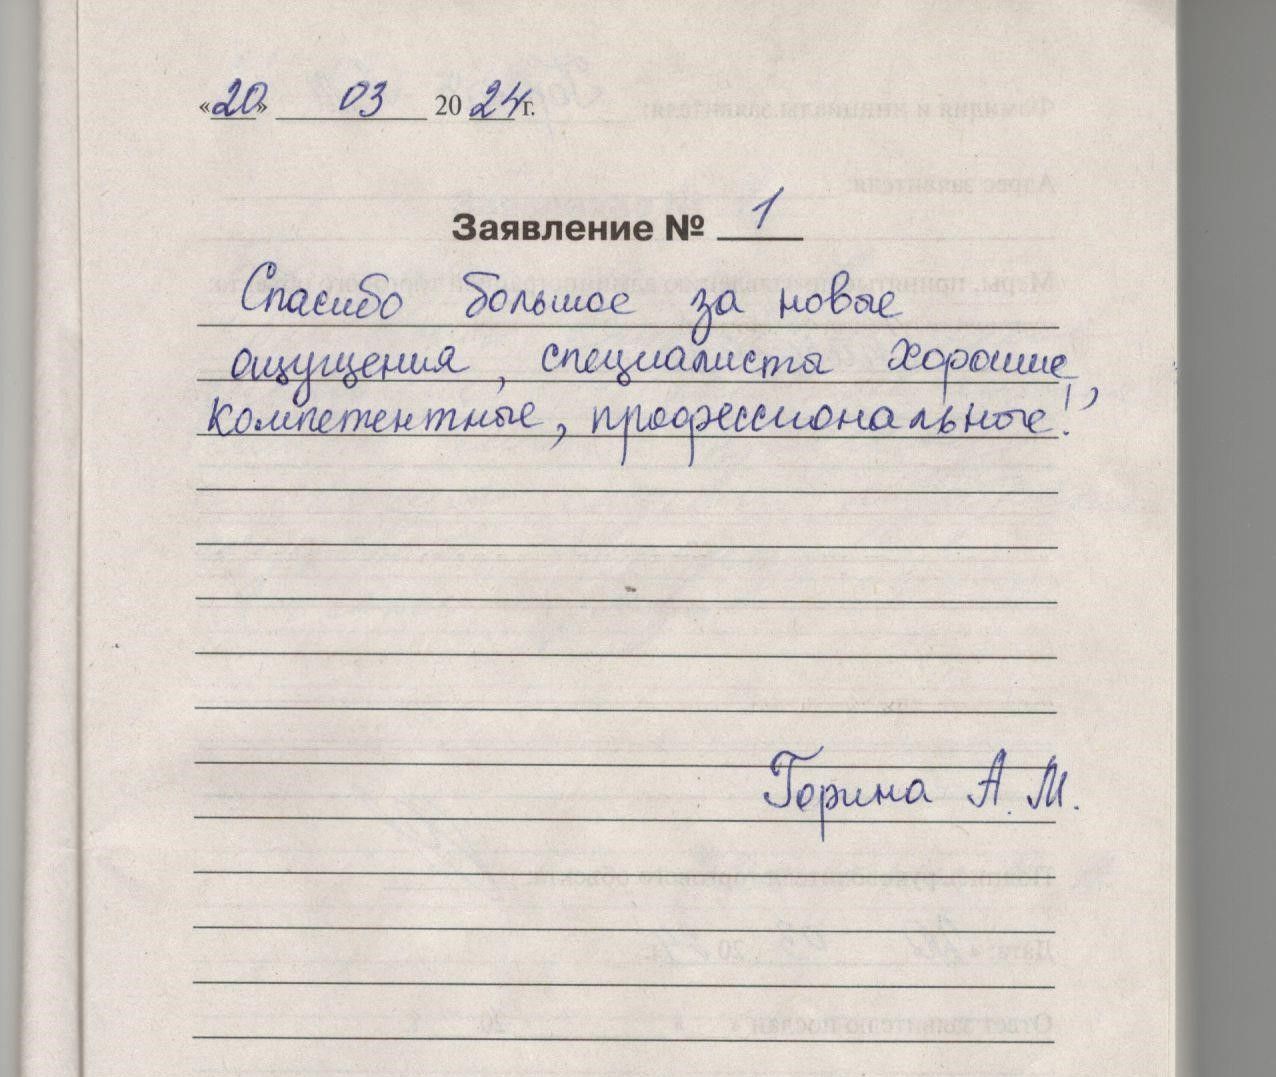 «20» 03 2024 г.
Заявление № 1
Спасибо большое за новые
ощущения, специалисты хорошие,
компетентные, профессиональные!
Горина А. М.